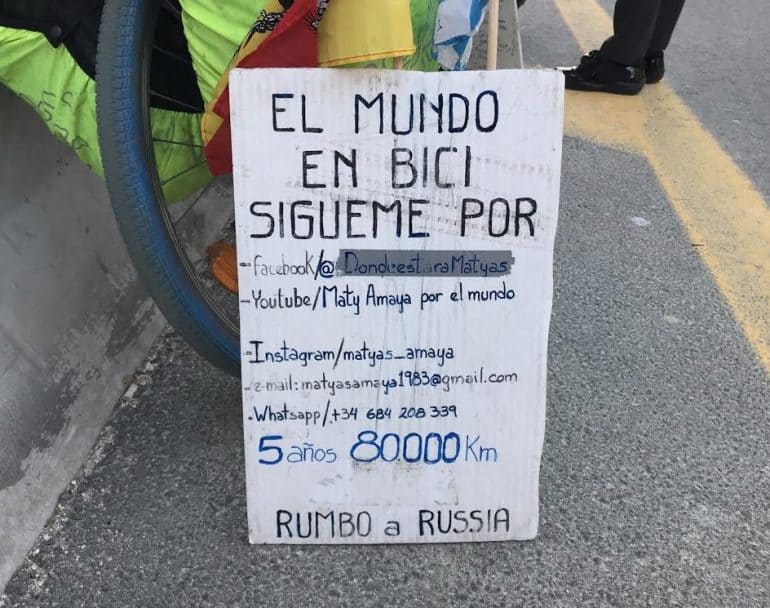 EL MUNDO
EN BICI
SIGUEME POR
- Facebook/@DondeestaraMatyas
- Youtube/Maty Amaya por el mundo
- Instagram/matyas_amaya
- e-mail: matyasamaya1983@gmail.com
- Whatsapp/+34 684 208 339
5 años 80000 Km
RUMBO a RUSSIA